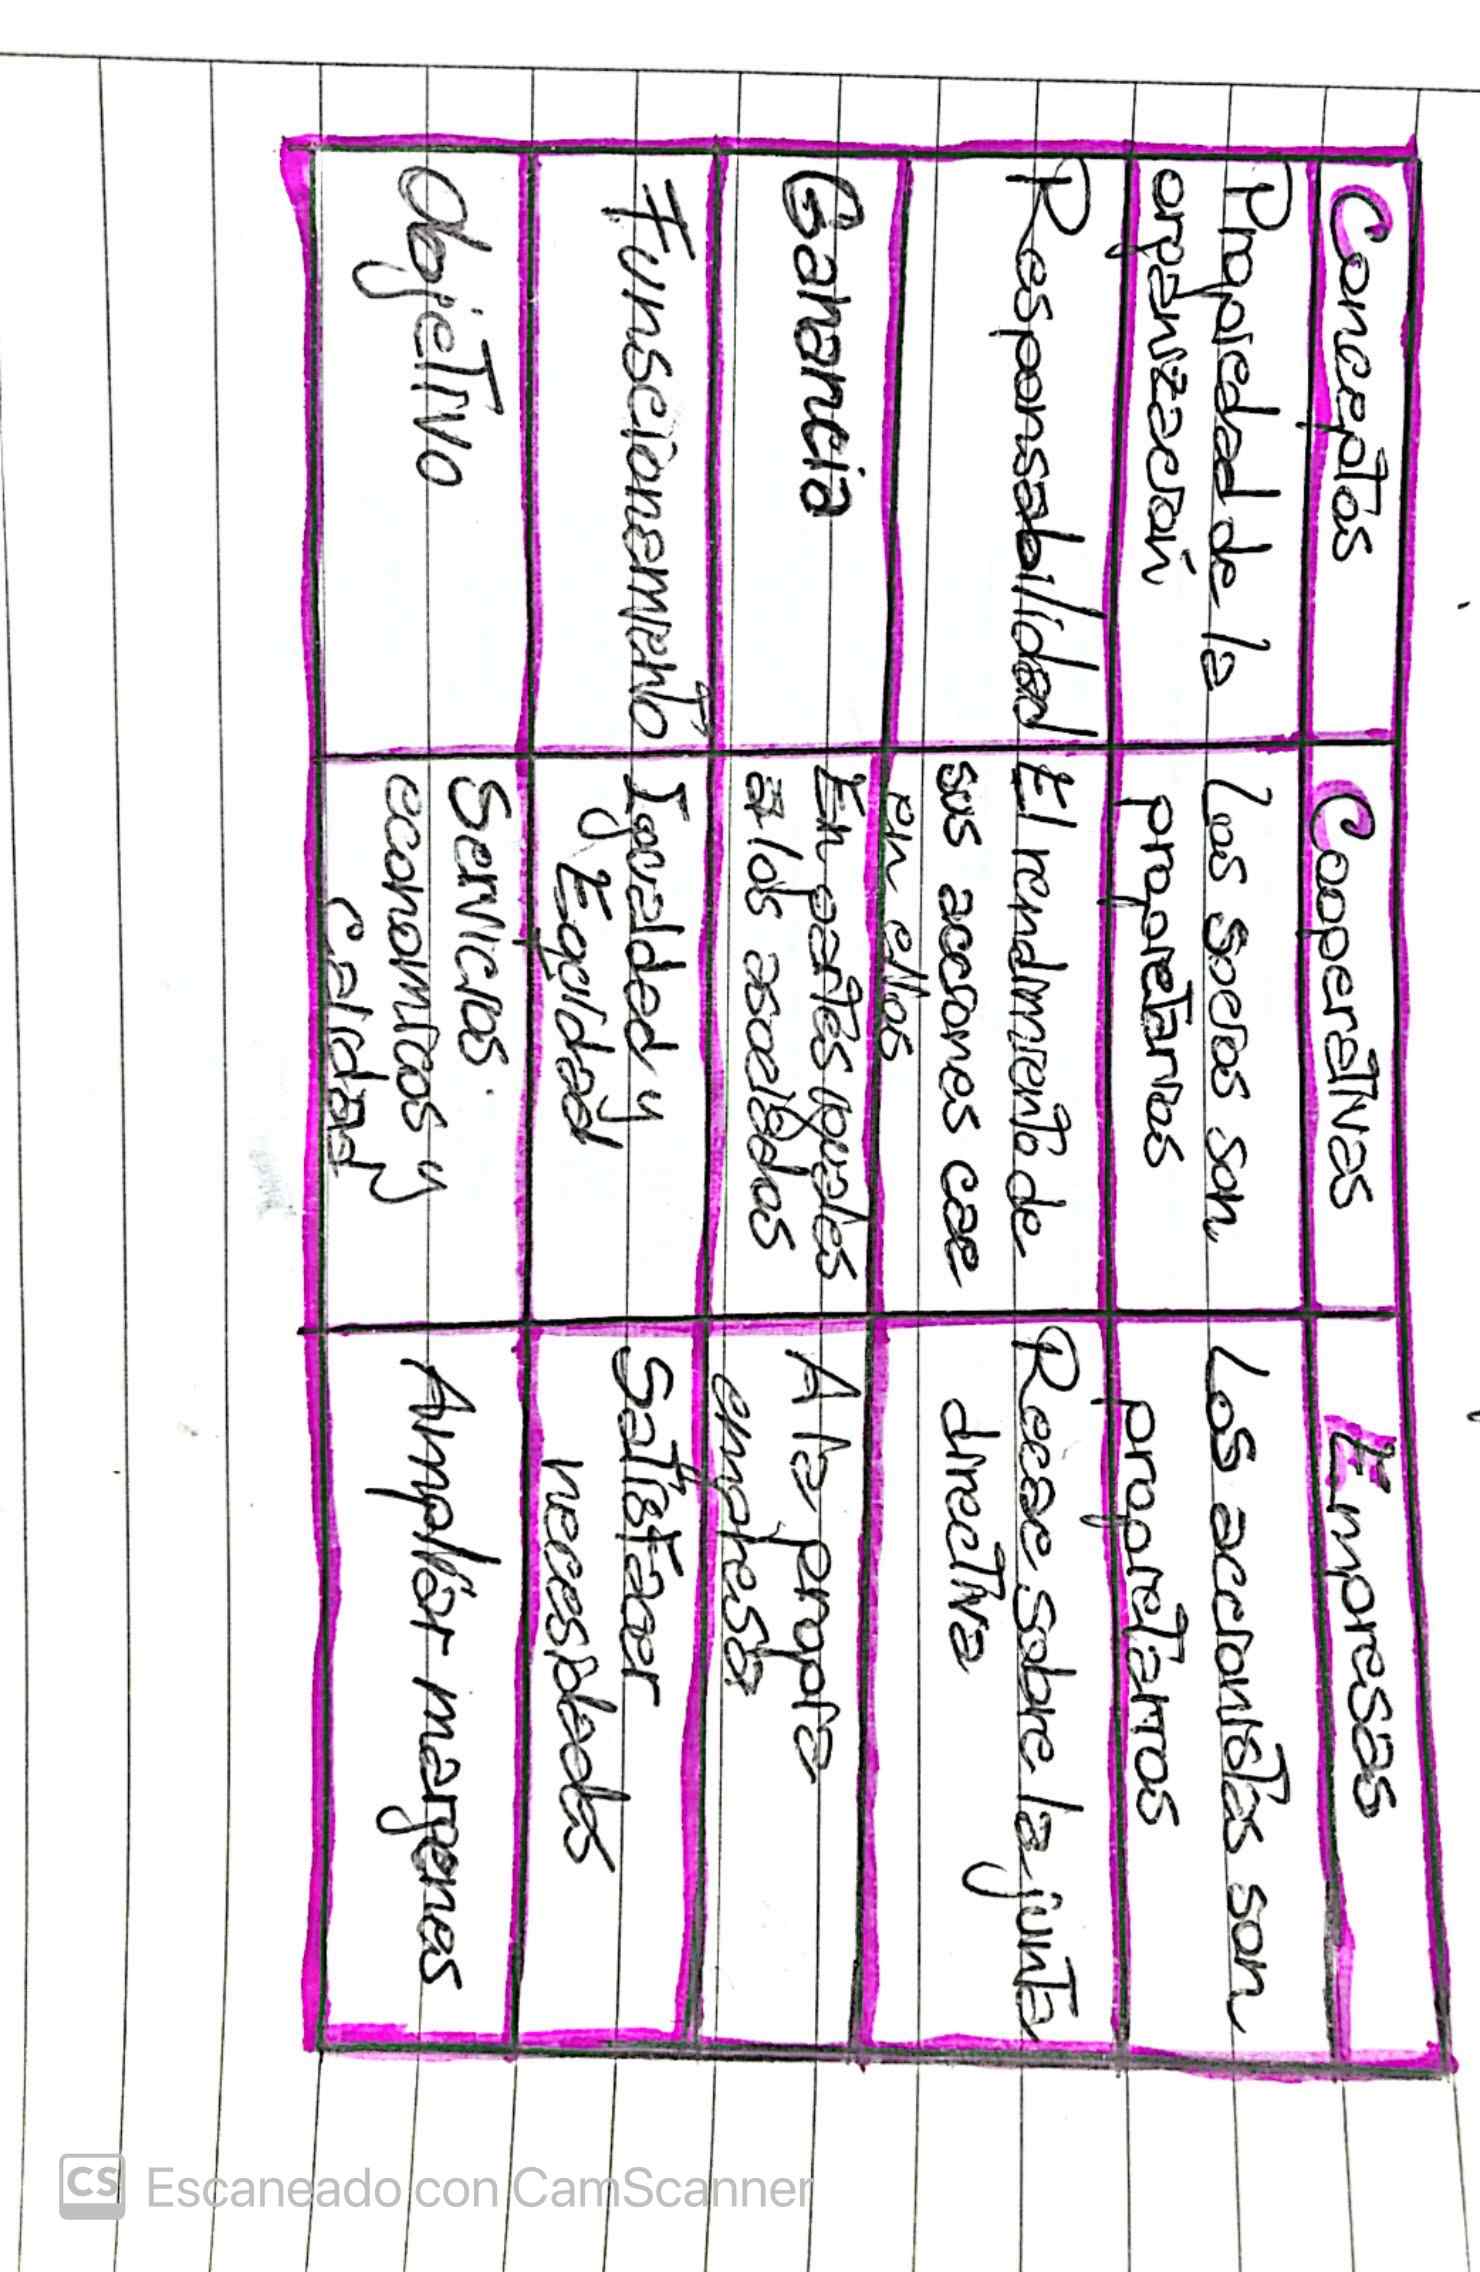 Conceptos
Cooperativas
Empresas
Propiedad de la
organización
Los socios son
propietarios
Los accionistas son
propietarios
Responsabilidad
El rendimiento de
sus acciones cae
en ellos
Recae sobre la junta
directiva
Ganancia
En partes iguales
a los asociados
A la propia
empresa
Funscionamiento
Igualdad y
Equidad
Satisfacer
necesidades
Objetivo
Servicios
economicos y
Calidad
Ampliar margenes
CS Escaneado con CamScanner